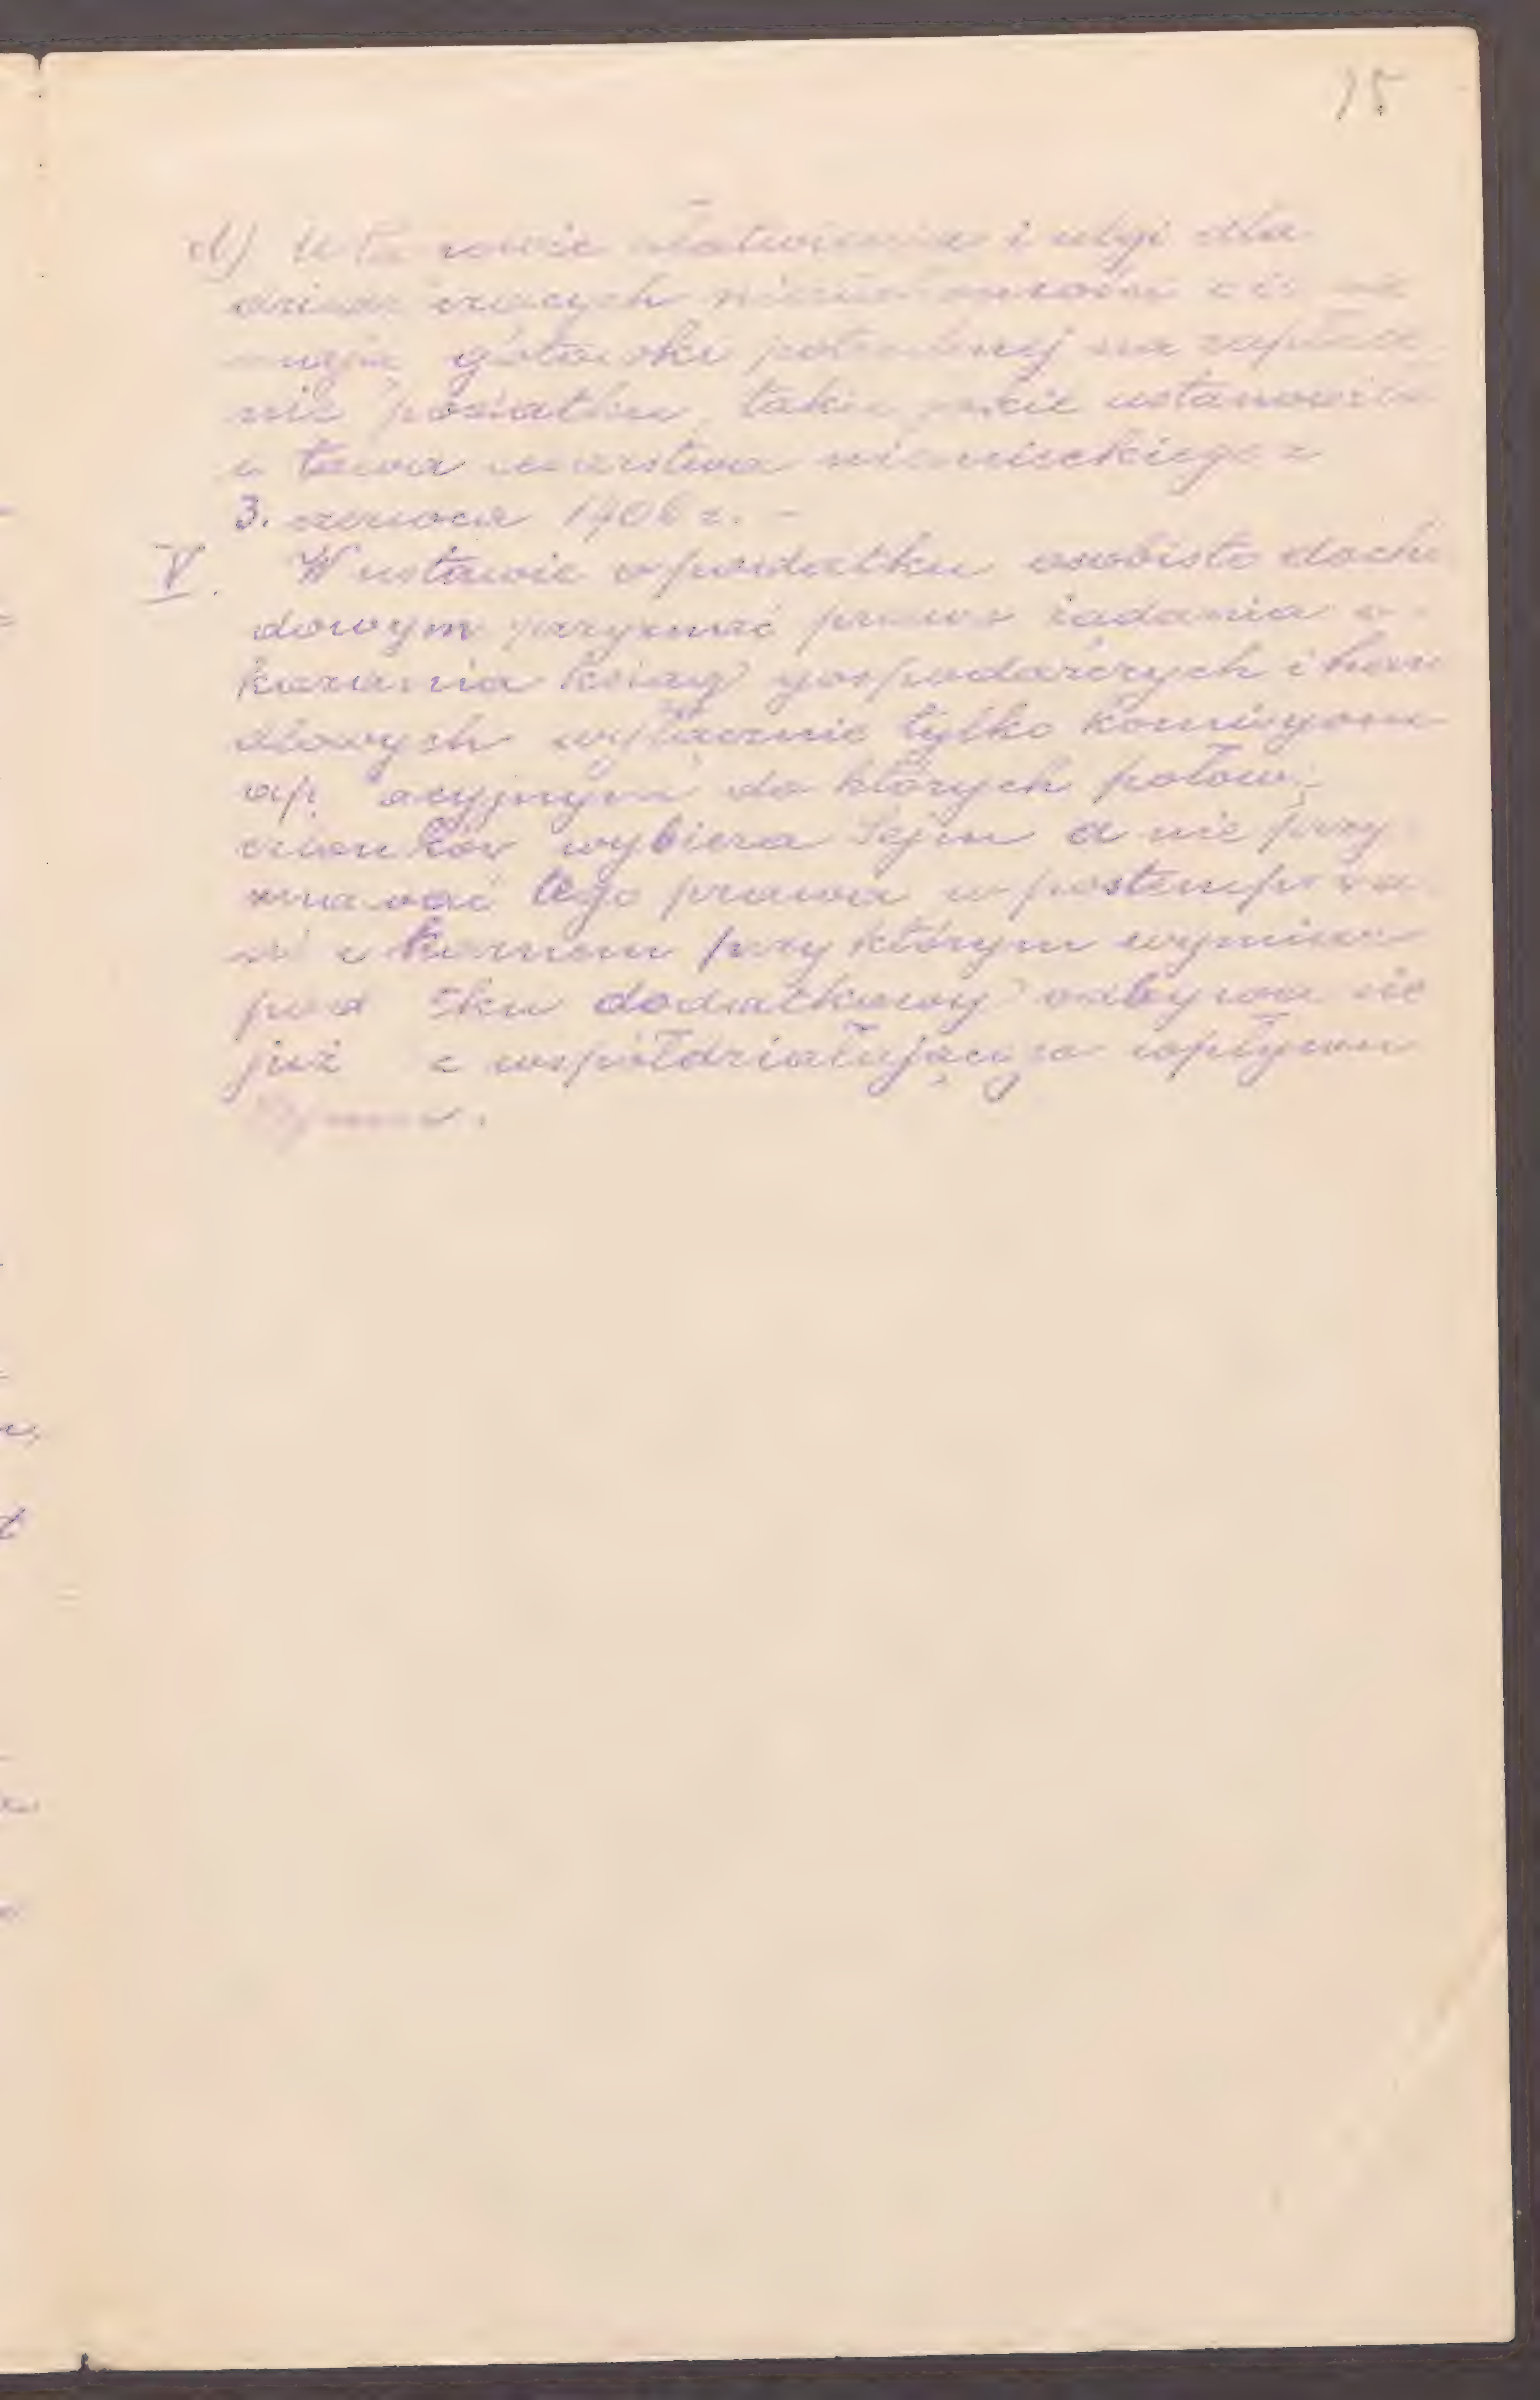 75
d) ułatwienia i ulgi dla
dziedziczących nieruchomości a nie
gotówki potrzebnej na zapłace
nie podatku, takie jakie ustanowiła
ustawa cesarstwa niemieckiego z
3. czerwca 1906 r. –
V. W ustawie o podatku osobisto docho
dowym przyznać prawo żądania o-
kazania ksiąg gospodarczych i han
dlowych wyłącznie tylko komisyom
do których połowę
członków wybiera Sejm a nie przy
znawać tego prawa w postempowa
niu karnem przy którym wymiar
podatku dodatkowy odbywa się
już współdziałającego wpływu